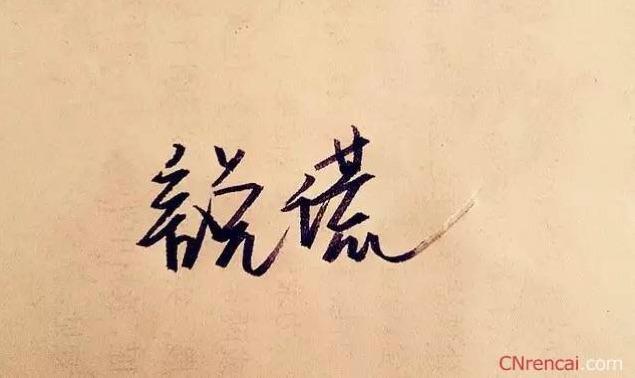 説谎
CNrencai.com